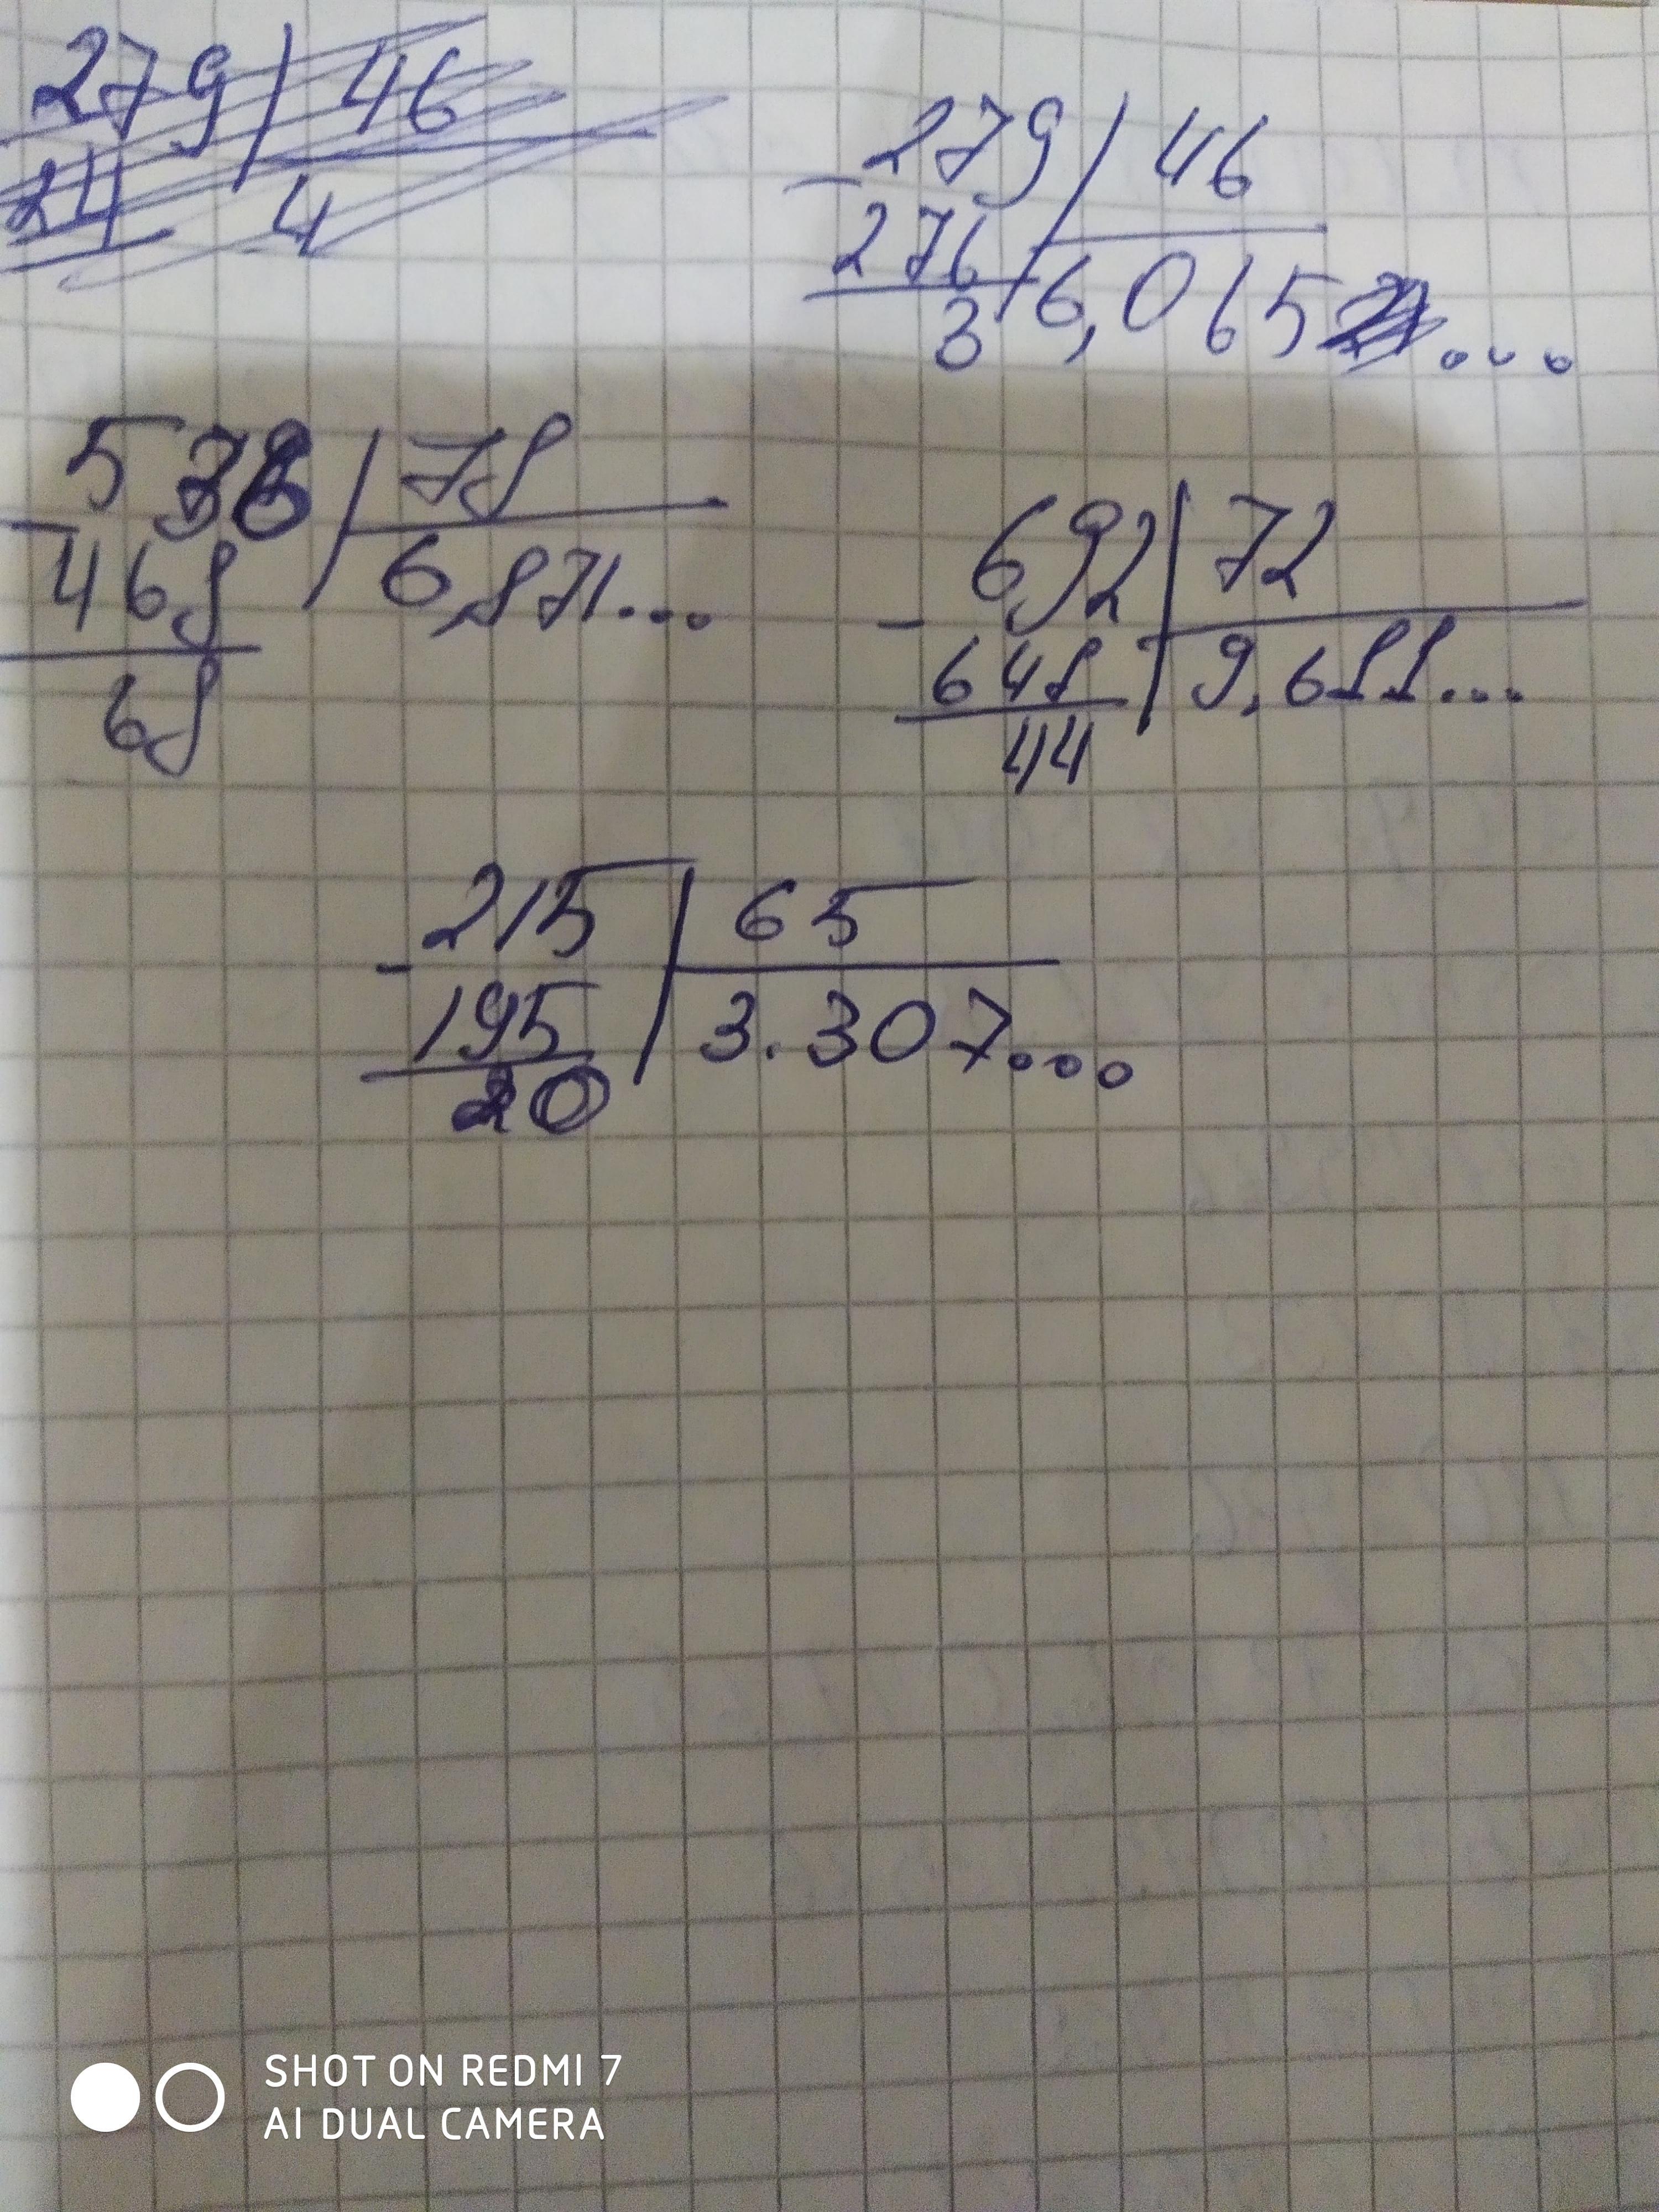 279 46
24 4
279 46
- 276 6,065...
3
536 78
- 468 6,871...
68
692 72
- 648 9,611...
44
215 65
- 195 3.307...
20
SHOT ON REDMI 7
AI DUAL CAMERA